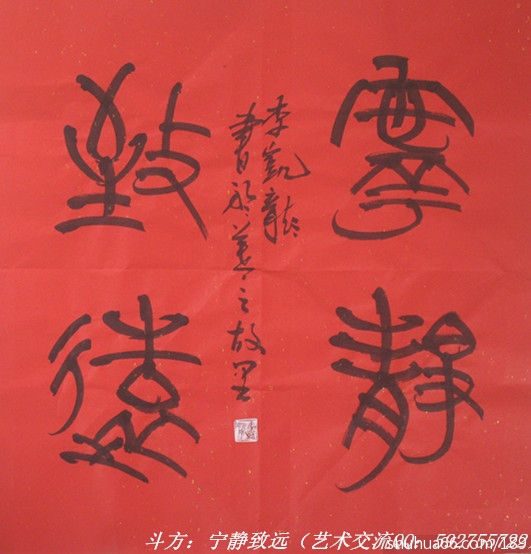 寧靜
致遠
李凱龍
書於羲之故里
斗方：宁静致远（艺术交流QQ：592755729